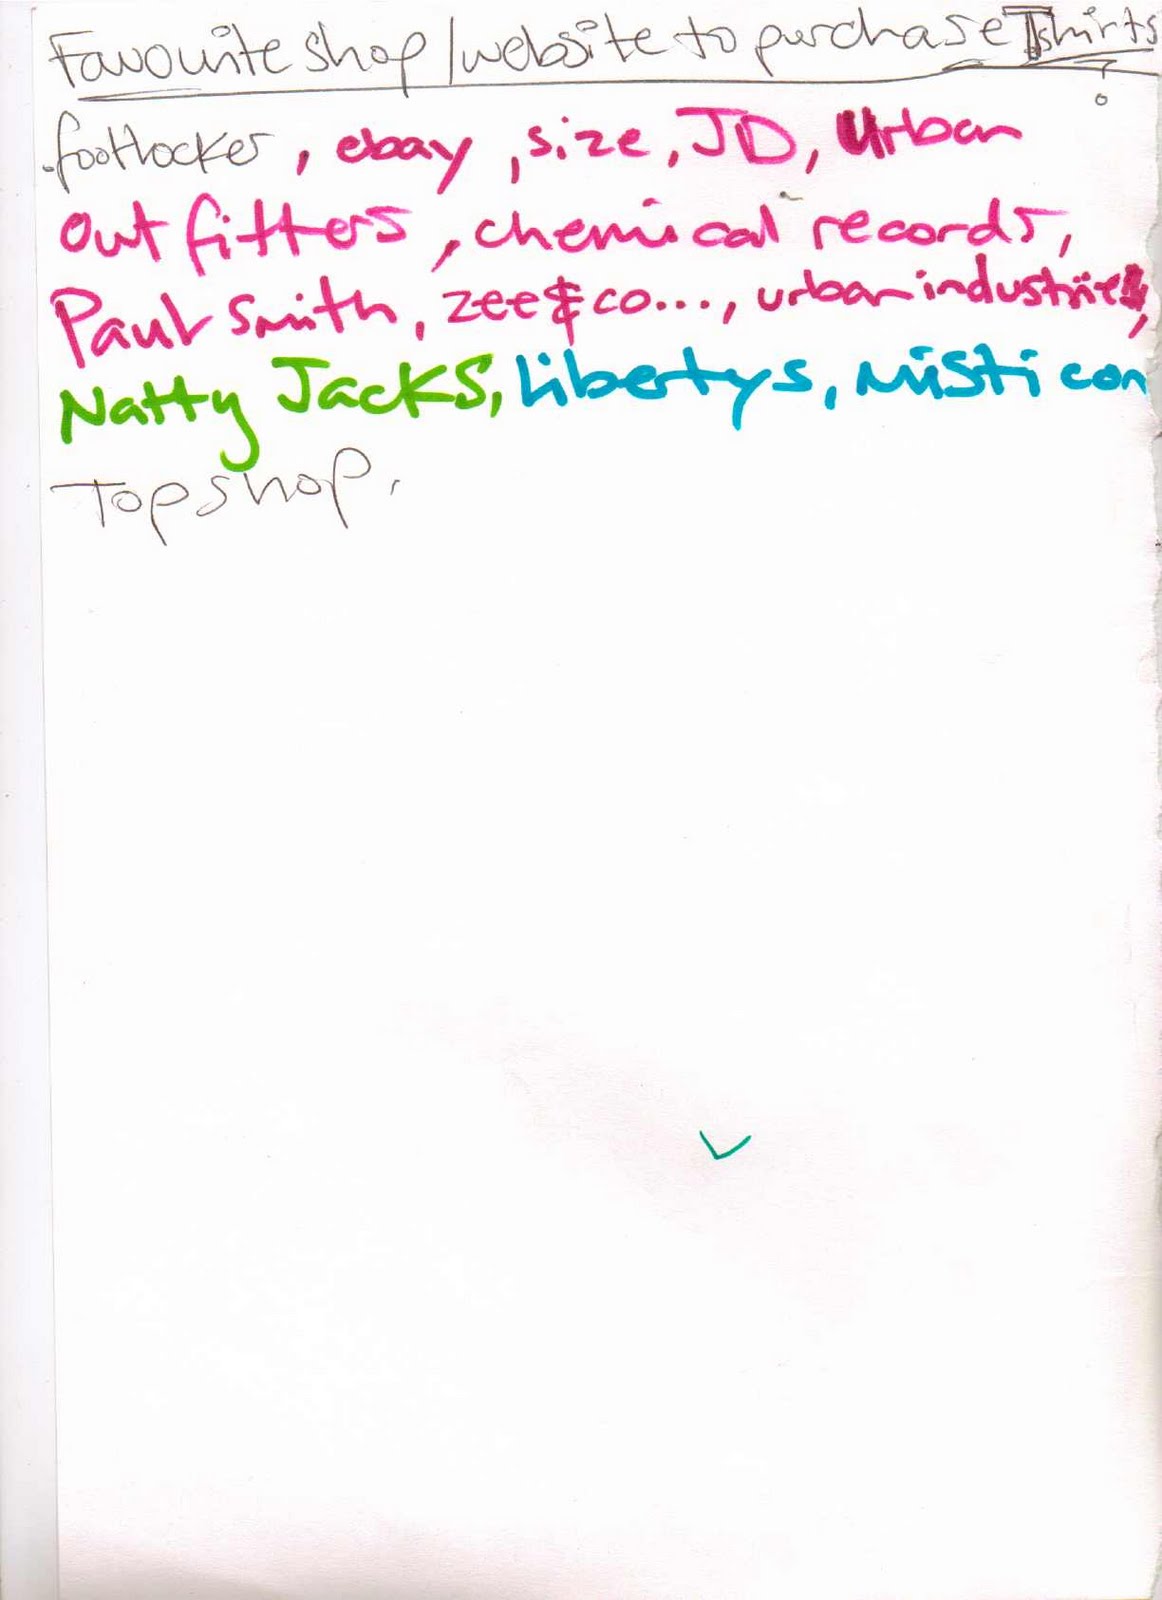 Favourite shop / website to purchase Tshirts?
.footlocker, ebay, size, JD, Urban
Outfitters, chemical records,
Paul Smith, zee & co..., urban industries,
Natty Jacks, Libertys, Misti con
Topshop.